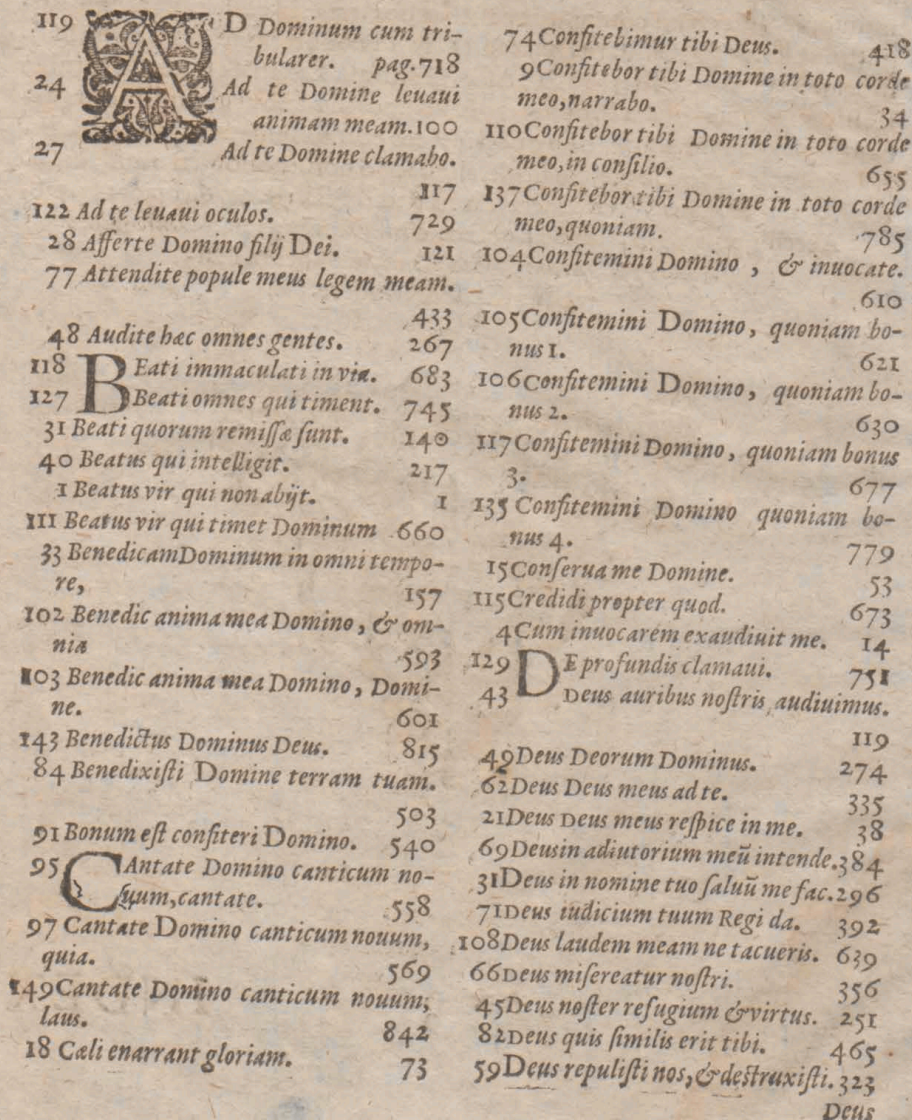 119 AD Dominum cum tri-
bularer. pag.718
24 Ad te Domine leuaui
animam meam.100
27 Ad te Domine clamabo.
117
122 Ad te leuaui oculos. 729
28 Afferte Domino filij Dei. 121
77 Attendite popule meus legem meam.
433
48 Audite hæc omnes gentes. 267
118 BEati immaculati in via. 683
127 Beati omnes qui timent. 745
31 Beati quorum remissæ sunt. 140
40 Beatus qui intelligit. 217
1 Beatus vir qui non abijt. 1
111 Beatus vir qui timet Dominum 660
33 BenedicamDominum in omni tempo-
re, 157
102 Benedic anima mea Domino, & om-
nia 593
103 Benedic anima mea Domino, Domi-
ne. 601
143 Benedictus Dominus Deus. 815
84 Benedixisti Domine terram tuam.
503
91 Bonum est confiteri Domino. 540
95 CAntate Domino canticum no-
uum,cantate. 558
97 Cantate Domino canticum nouum,
quia. 569
149Cantate Domino canticum nouum,
laus. 842
18 Cæli enarrant gloriam. 73
74Confitebimur tibi Deus. 418
9Confitebor tibi Domine in toto corde
meo,narrabo. 34
110Confitebor tibi Domine in toto corde
meo,in consilio. 655
137Confitebor tibi Domine in toto corde
meo,quoniam. 785
104Confitemini Domino , & inuocate.
610
105Confitemini Domino, quoniam bo-
nus 1. 621
106Confitemini Domino, quoniam bo-
nus 2. 630
117Confitemini Domino, quoniam bonus
3. 677
135 Confitemini Domino quoniam bo-
nus 4. 779
15Conserua me Domine. 53
115Credidi propter quod. 673
4Cum inuocarem exaudiuit me. 14
129 DE profundis clamaui. 751
43 Deus auribus nostris audiuimus.
119
49Deus Deorum Dominus. 274
62Deus Deus meus ad te. 335
21Deus Deus meus respice in me. 38
69Deusin adiutorium meū intende.384
31Deus in nomine tuo saluū me fac.296
71Deus iudicium tuum Regi da. 392
108Deus laudem meam ne tacueris. 639
66Deus misereatur nostri. 356
45Deus noster refugium &virtus. 251
82Deus quis similis erit tibi. 465
59Deus repulisti nos,&destruxisti.323
Deus